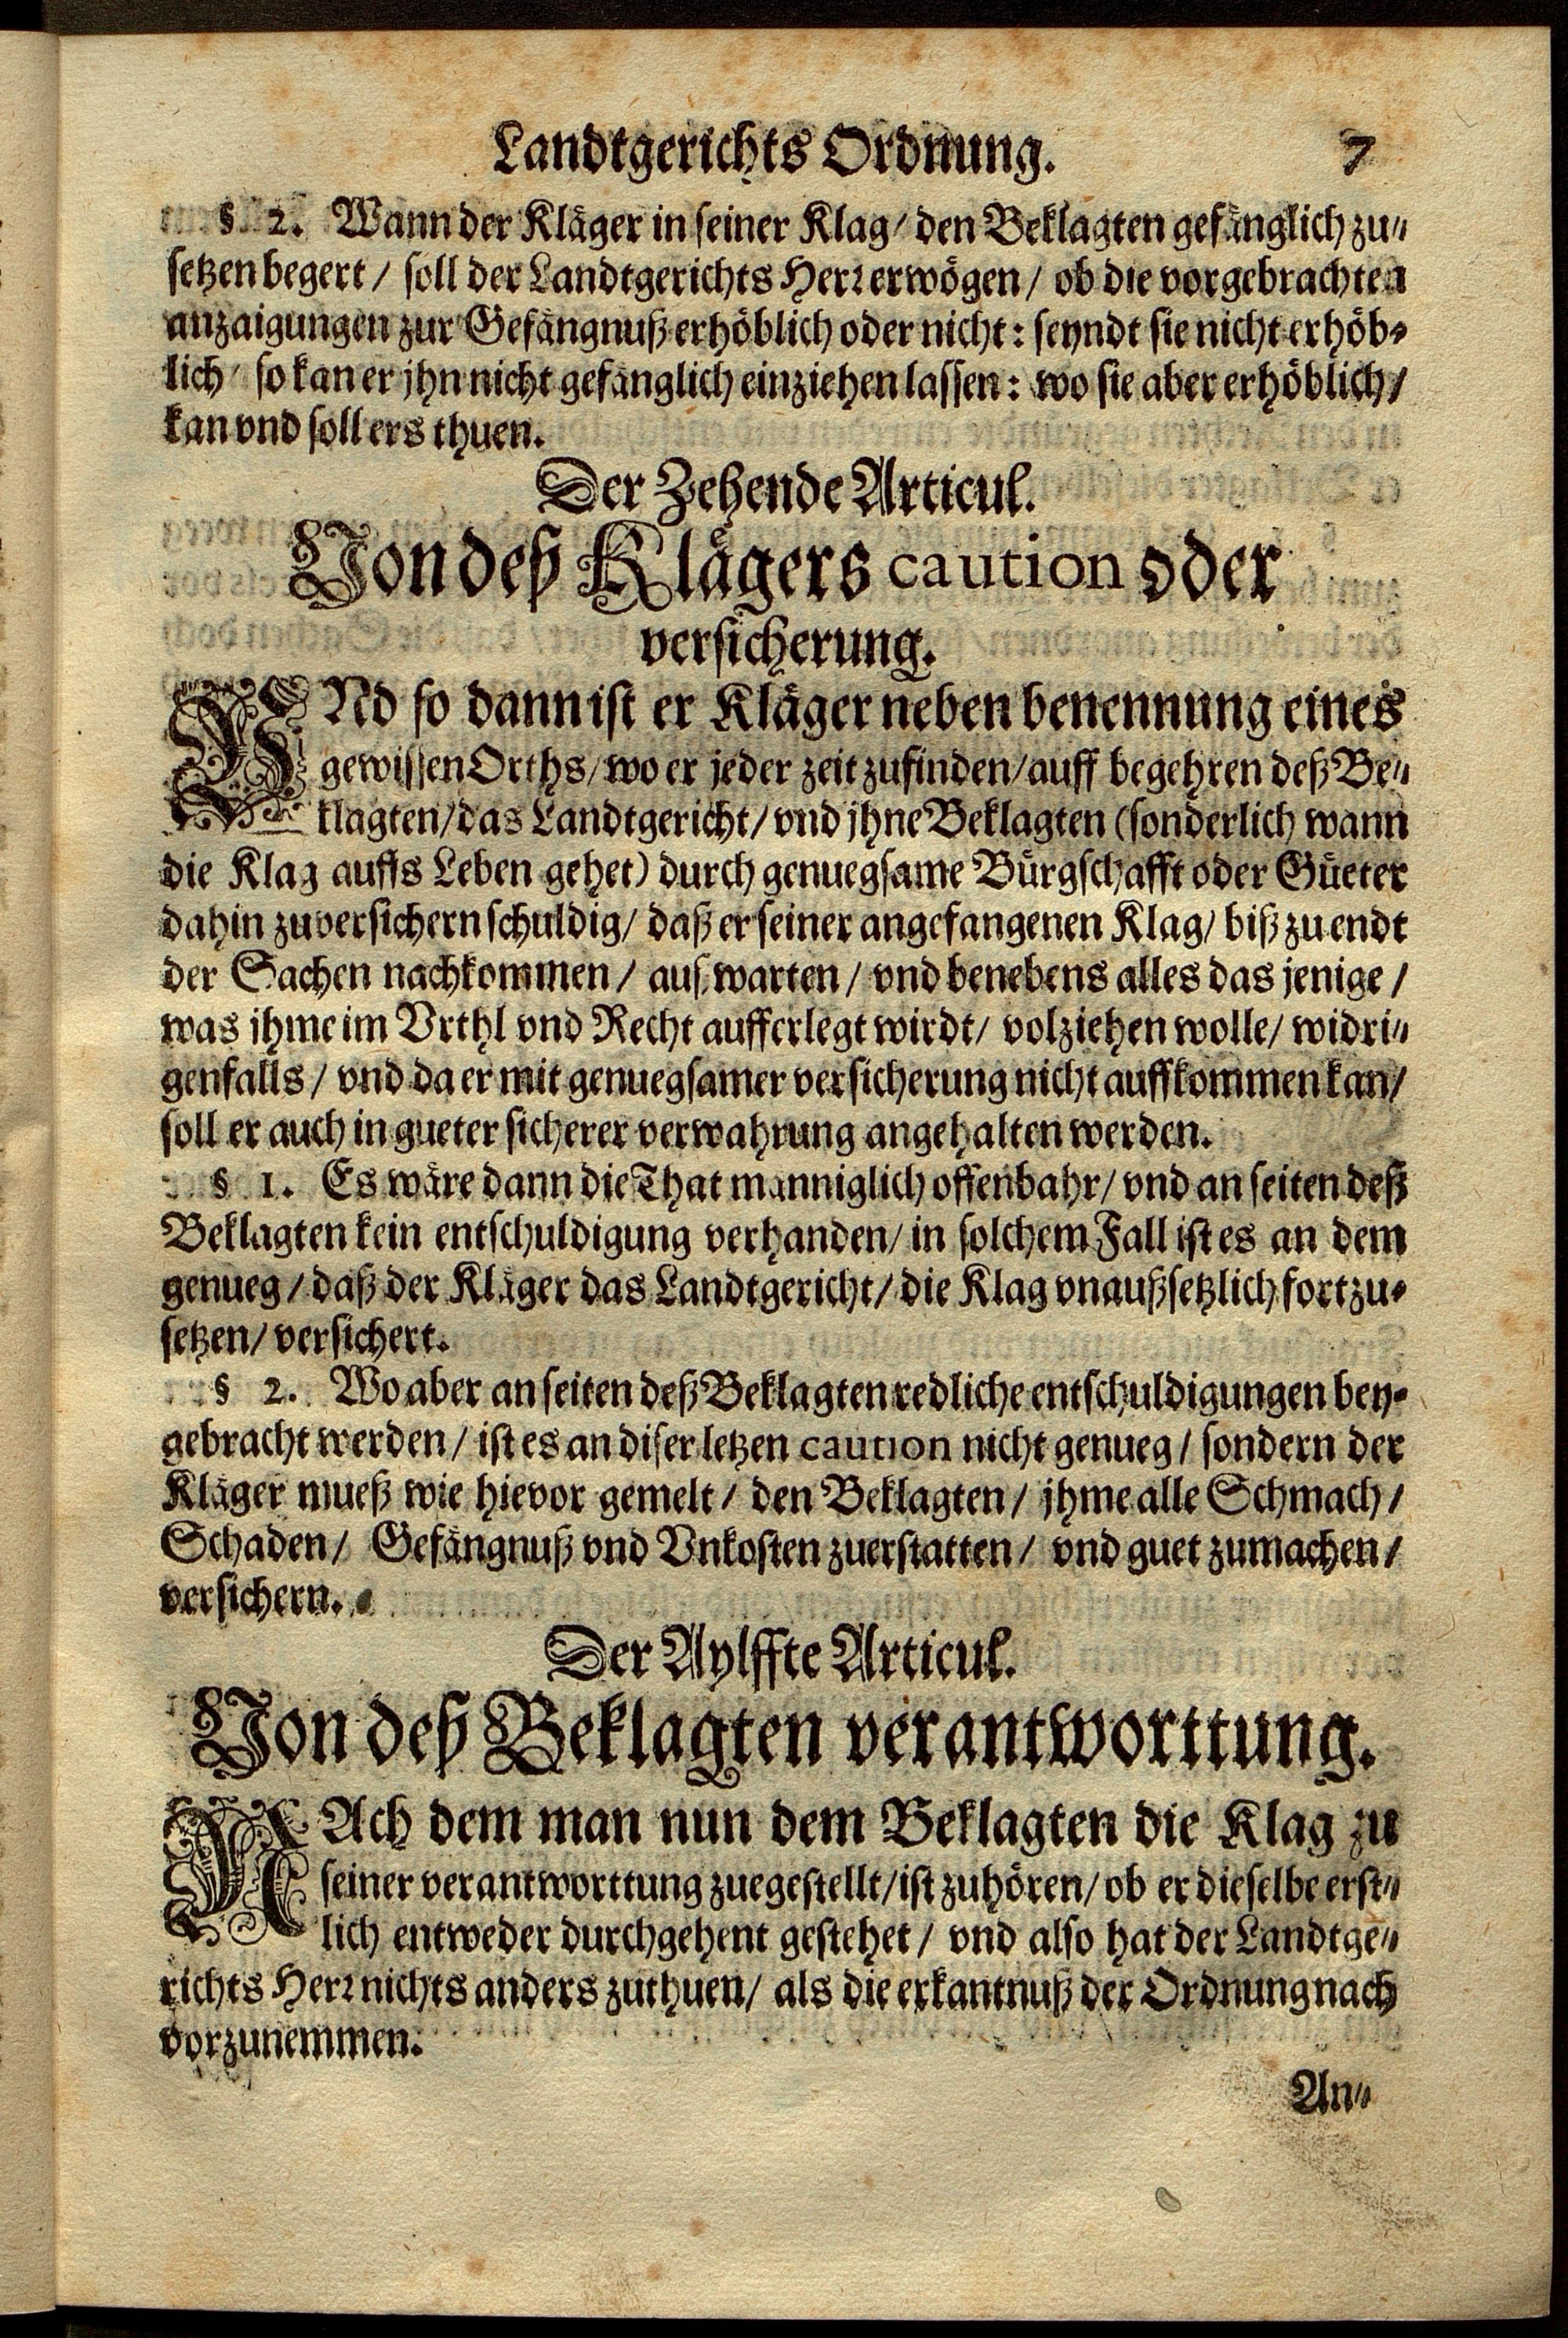 Landtgerichts Ordnung. 7
§ 2. Wann der Kläger in seiner Klag / den Beklagten gefänglich zu⸗
setzen begert / soll der Landtgerichts Herr erwögen / ob die vorgebrachten
anzaigungen zur Gefängnuß erhöblich oder nicht: seyndt sie nicht erhöb⸗
lich / so kan er jhn nicht gefänglich einziehen lassen: wo sie aber erhöblich /
kan vnd soll ers thuen.
Der Zehende Articul.
Von deß Klägers caution oder
versicherung.
VNd so dann ist er Kläger neben benennung eines
gewissen Orths / wo er jeder zeit zufinden / auff begehren deß Be⸗
klagten / das Landtgericht / vnd jhne Beklagten (sonderlich wann
die Klag auffs Leben gehet) durch genuegsame Bürgschafft oder Güeter
dahin zuversichern schuldig / daß er seiner angefangenen Klag / biß zu endt
der Sachen nachkommen / außwarten / vnd benebens alles das jenige /
was jhme im Vrthl vnd Recht aufferlegt wirdt / volziehen wolle / widri⸗
genfalls / vnd da er mit genuegsamer versicherung nicht auffkommen kan /
soll er auch in gueter sicherer verwahrung angehalten werden.
§ 1. Es wäre dann die That manniglich offenbahr / vnd an seiten deß
Beklagten kein entschuldigung verhanden / in solchem Fall ist es an dem
genueg / daß der Kläger das Landtgericht / die Klag vnaußsetzlich fortzu⸗
setzen / versichert.
§ 2. Wo aber an seiten deß Beklagten redliche entschuldigungen bey⸗
gebracht werden / ist es an diser letzen caution nicht genueg / sondern der
Kläger mueß wie hievor gemelt / den Beklagten / jhme alle Schmach /
Schaden / Gefängnuß vnd Vnkosten zuerstatten / vnd guet zumachen /
versichern.
Der Aylffte Articul.
Von deß Beklagten verantworttung.
NAch dem man nun dem Beklagten die Klag zu
seiner verantworttung zuegestellt / ist zuhören / ob er dieselbe erst⸗
lich entweder durchgehent gestehet / vnd also hat der Landtge⸗
richts Herr nichts anders zuthuen / als die erkantnuß der Ordnung nach
vorzunemmen.
An⸗